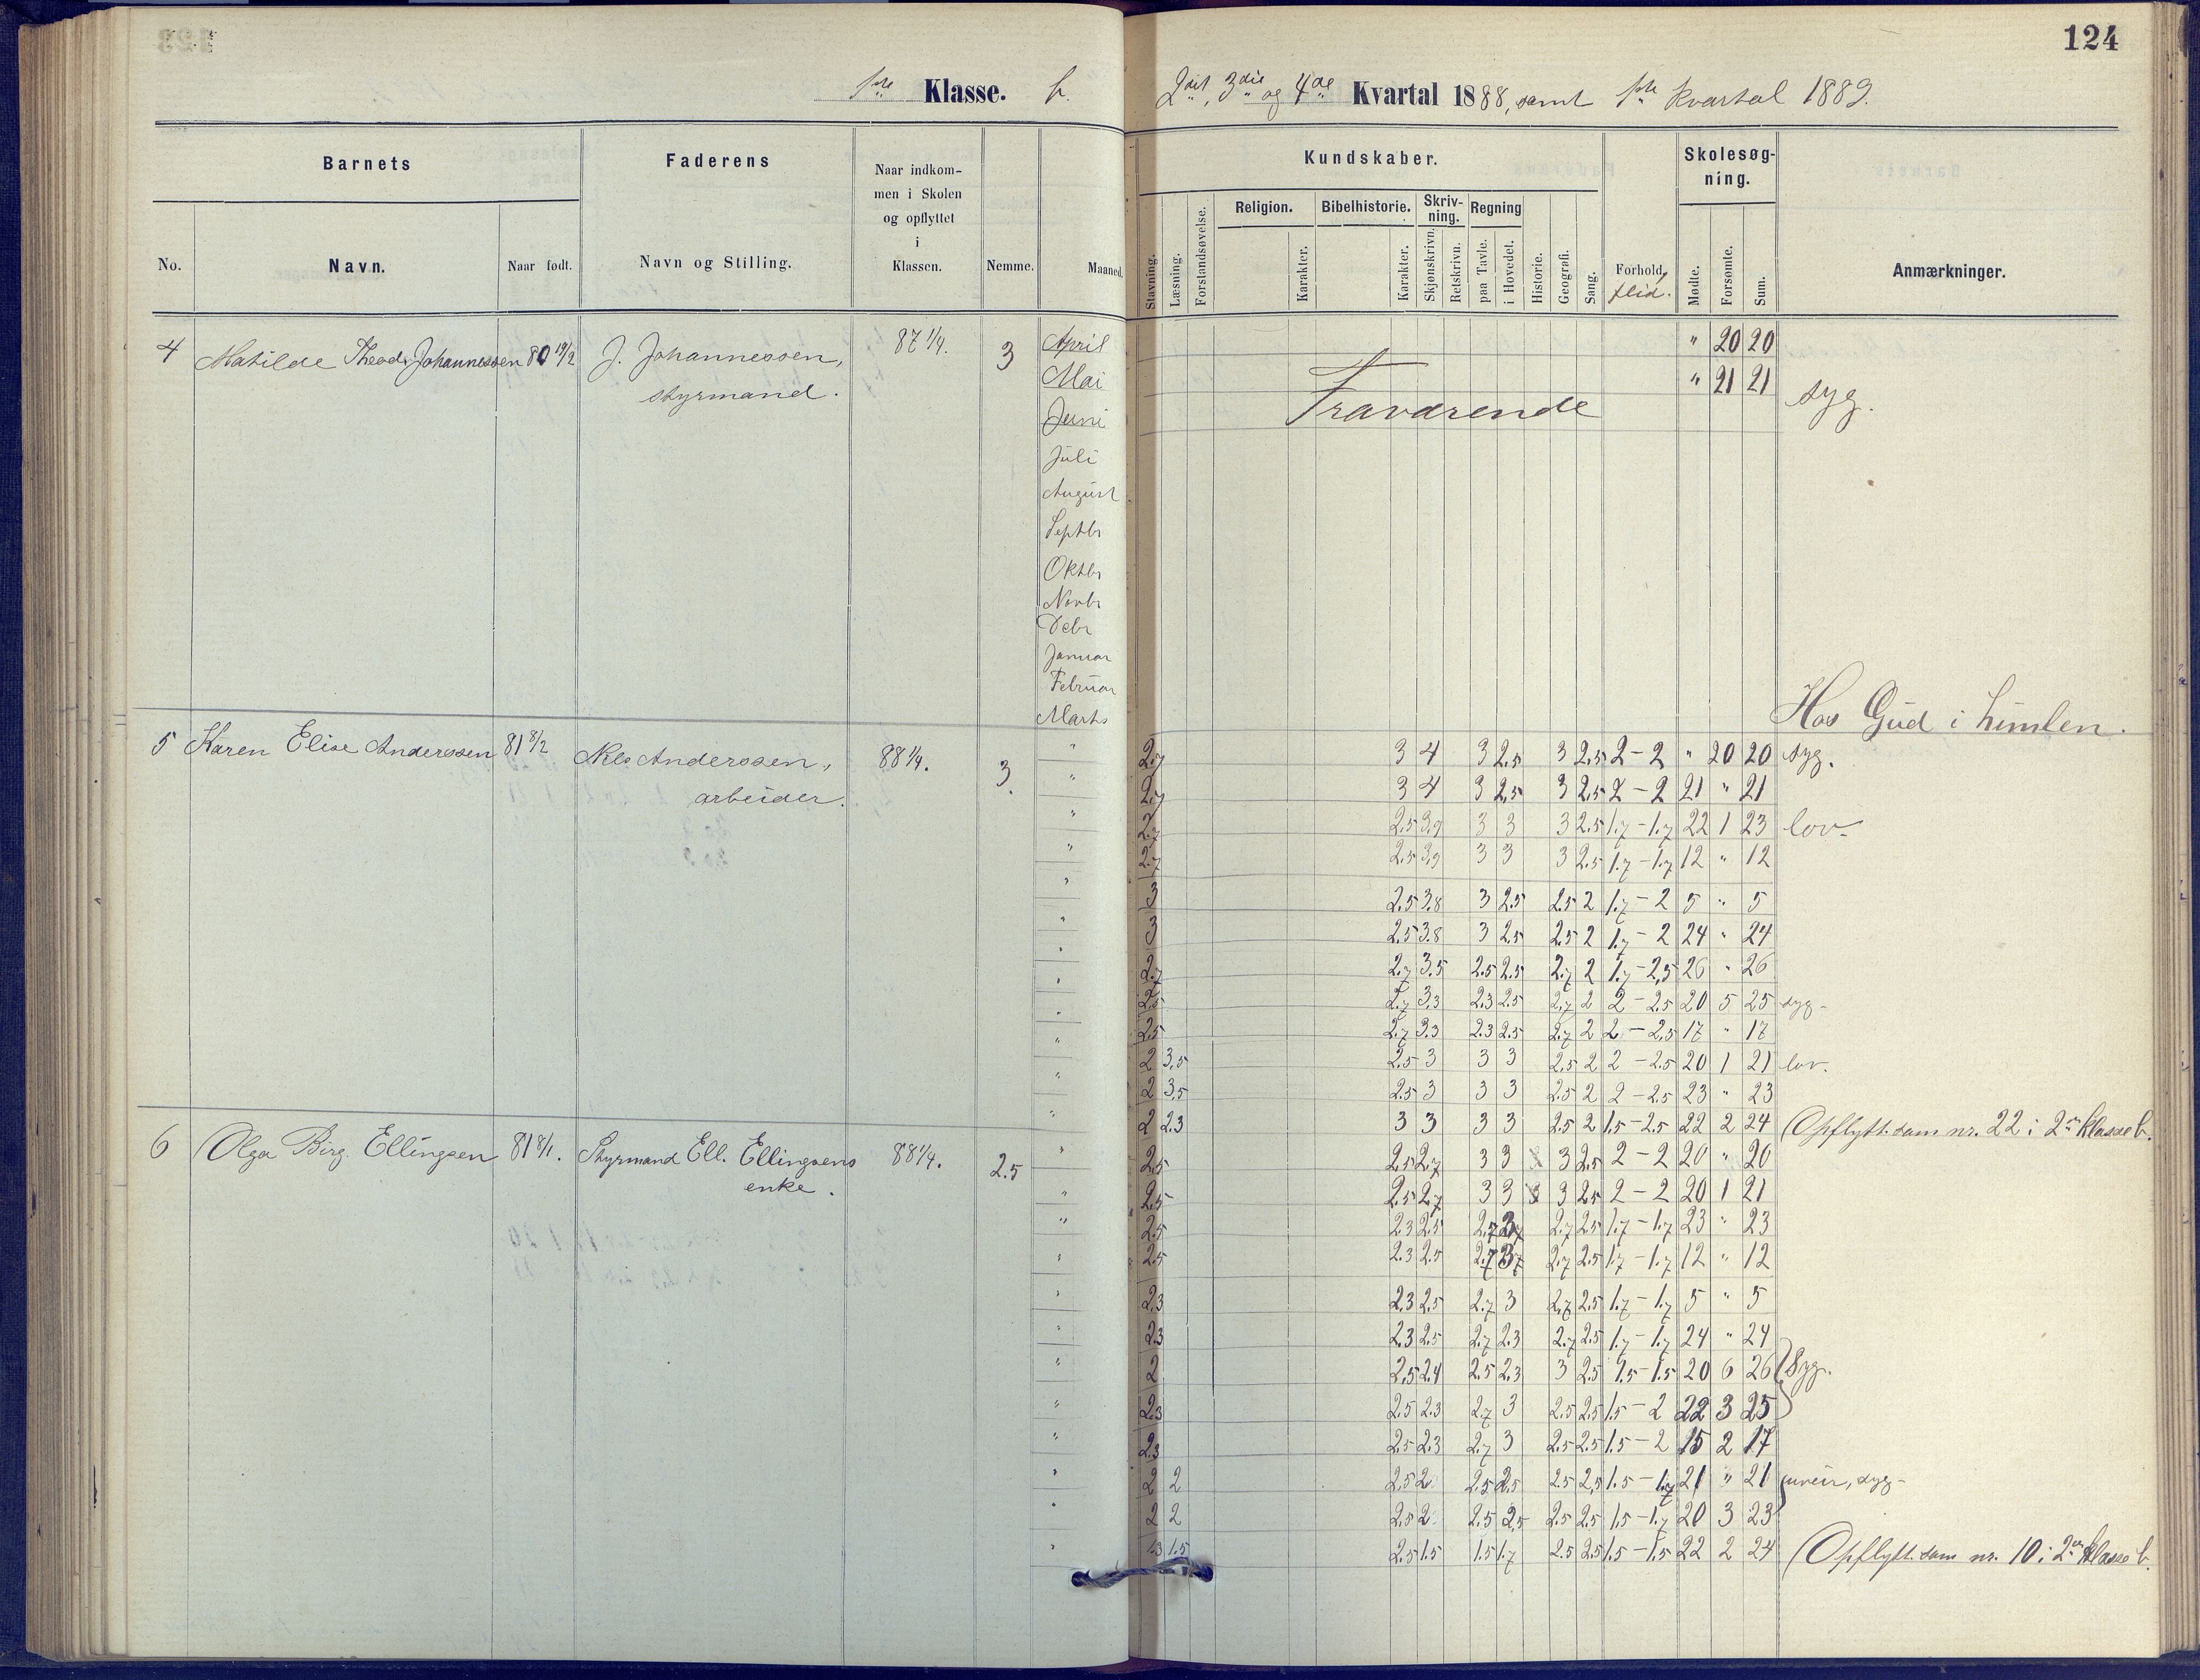 124
1ste Klasse. b.
2det, 3die og 4de Kvartal 1888, samt 1ste Kvartal 1889.
Barnets Faderens Naar indkom-
men i Skolen
og opflyttet
i
Klassen.
No. Navn. Naar født. Navn og Stilling. Nemme. Maaned.
Kundskaber. Skolesøg-
ning.
Religion. Bibelhistorie. Skriv-
ning. Regning
Stavning. Læsning. Forstandsøvelse. Karakter. Karakter. Skjønskrivn. Retskrivn. paa Tavle. i Hovedet. Historie. Geografi. Sang. Forhold, flid. Mødte. Forsømte. Sum. Anmærkninger.
4 Matilde Theod. Johannessen 80 19/2 J. Johannessen, 87 1/4. 3 April " 20 20
styrmand. Mai " 21 21 syg.
Juni Fraværende
Juli
August
Septbr
Oktbr
Novbr
Debr
Januar
Februar
Marts Hos Gud i himlen.
5 Karen Elise Anderssen 81 8/2 Nils Anderssen, 88 1/4. 3. " 2.7 3 4 3 2.5 3 2.5 2-2 " 20 20 syg.
arbeider. " 2.7 3 4 3 2.5 3 2.5 2-2 21 " 21
" 2.7 2.5 3.9 3 3 3 2.5 1.7-1.7 22 1 23 lov.
" 2.7 2.5 3.9 3 3 3 2.5 1.7-1.7 12 " 12
" 3 2.5 3.8 3 2.5 2.5 2 1.7-2 5 " 5
" 3 2.5 3.8 3 2.5 2.5 2 1.7-2 24 " 24
" 2.7 2.7 3.5 2.5 2.5 2.7 2 1.7-2.5 26 " 26
" 2.5 2.7 3.3 2.3 2.5 2.7 2 2-2.5 20 5 25 syg-
" 2.5 2.7 3.3 2.3 2.5 2.7 2 2-2.5 17 " 17
" 2 3.5 2.5 3 3 3 2.5 2 2-2.5 20 1 21 lov.
" 2 3.5 2.5 3 3 3 2.5 2 2-2.5 23 " 23
" 2 2.3 3 3 3 3 2.5 2 1.5-2.5 22 2 24 Opflytt. som nr. 22 i 2en klasse b.
6 Olga Birg. Ellingsen 81 8/1. Styrmand Ell. Ellingsens 88 1/4. 2.5 " 2.5 2.5 2.7 3 3 3 2.5 2-2 20 " 20
enke. " 2.5 2.5 2.7 3 3 3 2.5 2-2 20 1 21
" 2.5 2.3 2.5 2.7 2.7 2.5 1.7-1.7 23 " 23
" 2.5 2.3 2.5 2.7 2.7 2.5 1.7-1.7 12 " 12
" 2.3 2.3 2.5 2.7 3 2.7 2.5 1.7-1.7 5 " 5
" 2.3 2.3 2.5 2.7 2.3 2.7 2.5 1.7-1.7 24 " 24
" 2 2.5 2.4 2.5 2.3 3 2.5 1.5-1.5 20 6 26 Syg.
" 2.3 2.5 2.3 2.7 3 2.5 2.5 1.5-2 22 3 25
" 2.3 2.5 2.3 2.7 3 2.5 2.5 1.5-2 15 2 17
" 2 2 2.5 2 2.5 2.5 2.5 2.5 1.5-1.7 21 " 21 uveir, syg-
" 2 2 2.5 2 2.5 2.5 2.5 2.5 1.5-1.7 20 3 23
" 1.3 1.5 2.5 1.5 1.5 1.7 2.5 2.5 1.5-1.5 22 2 24 Opflytt. som nr. 10 i 2en klasse b.